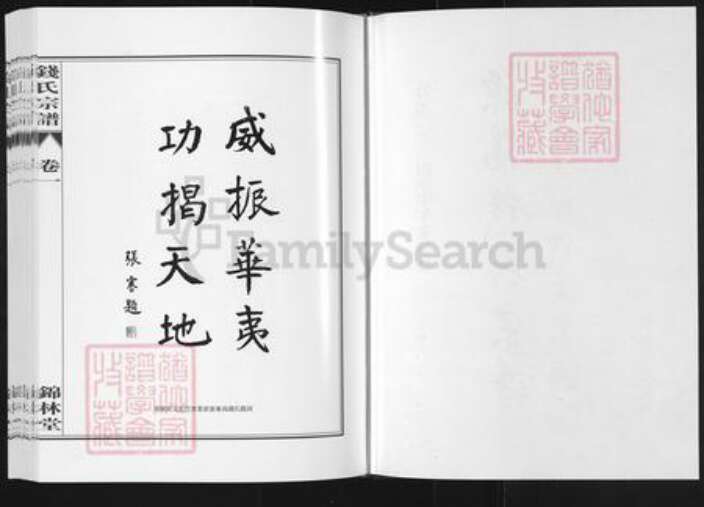 威振華夷
功揭天地
張寒題
錢氏宗譜
卷一
錦林堂
猶他家
譜學會
收藏
猶他家
譜學會
收藏
FamilySearch